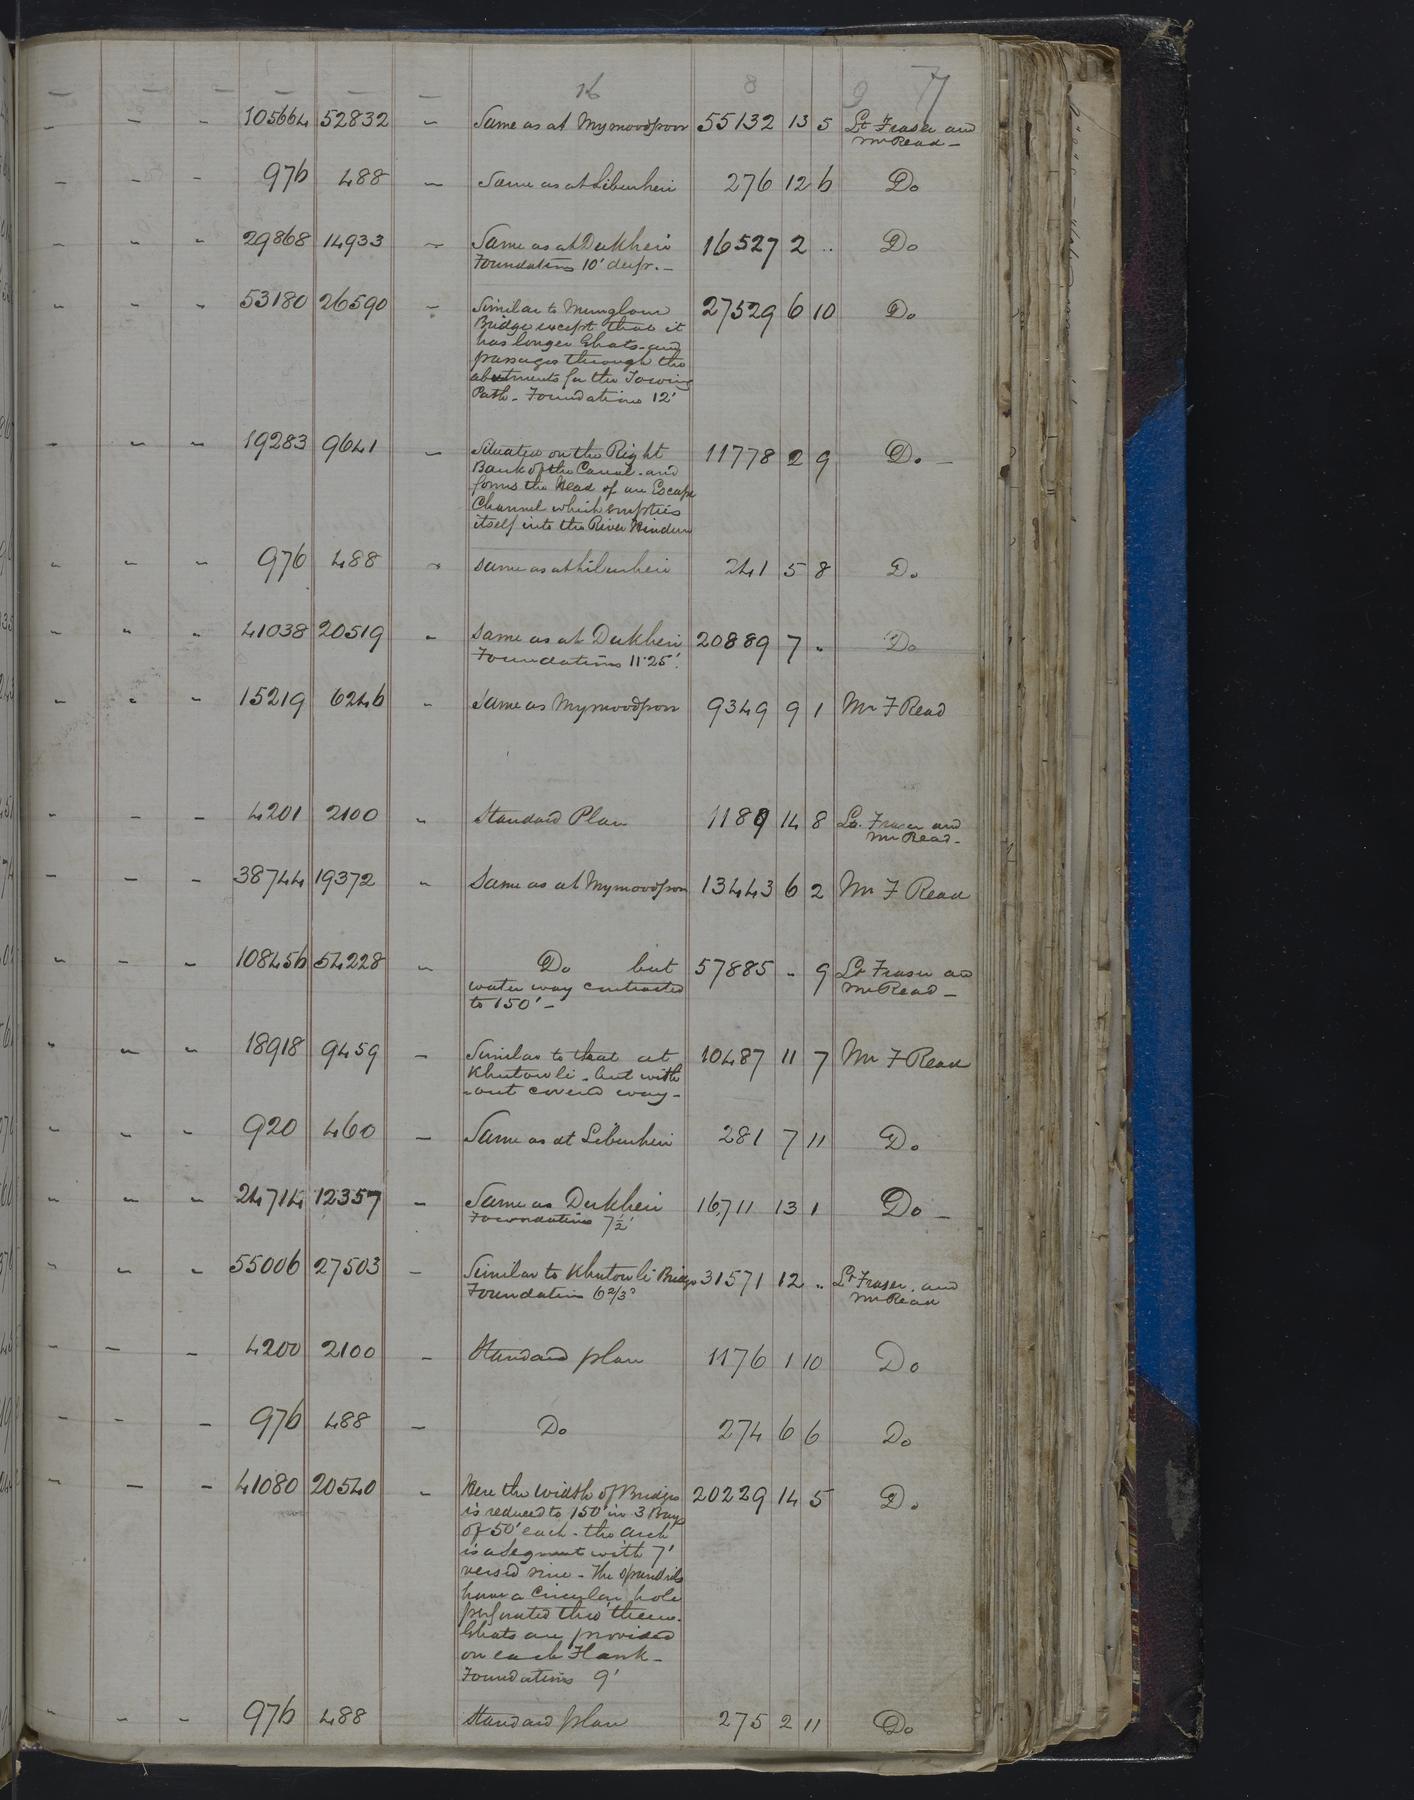 16 8 9 7
105664 52832 Same as at Mymoodpoor 55132 13 5 Lt Fraser and
Mr Read
976 488 Same as at Liburheri 276 12 6 Do
29868 14933 Same as at Dukheri 16527 2 .. Do
Foundations 10' deep.
53180 26590 Similar to Munglour 27529 6 10 Do
Bridge except that it
has longer Ghats and
passages through the
abutments for the Towing
Path. Foundations 12'
19283 9641 Situated on the Right 11778 2 9 Do
Bank of the Canal and
forms the Head of an Escape
Channel which empties
itself into the River Hindun
976 488 Same as at Liburheri 241 5 8 Do
41038 20519 Same as at Dukheri 20889 7 " Do
Foundations 11.25'
15219 6246 Same as Mymoodpoor 9349 9 1 Mr F Read
4201 2100 Standard Plan 1189 14 8 Lt. Fraser and
Mr Read
38744 19372 Same as at Mymoodpoor 13443 6 2 Mr F Read
108456 54228 Do but 57885 " 9 Lt Fraser and
water way contracted Mr Read
to 150'
18918 9459 Similar to that at 10487 11 7 Mr F Read
Khutowli but with
out covered way
920 460 Same as at Liburheri 281 7 11 Do
24714 12357 Same as Dukheri 16711 13 1 Do
Foundations 7½'
55006 27503 Similar to Khutowli Bridge 31571 12 .. Lt Fraser and
Foundations 6 2/3' Mr Read
4200 2100 Standard plan 1176 1 10 Do
976 488 Do 274 6 6 Do
41080 20540 Here the width of Bridge 20229 14 5 Do
is reduced to 150' in 3 Bays
of 50' each. the arch
is a Segment with 7'
versed sine - The spandrils
have a Circular hole
perforated thro' them.
Ghats are provided
on each Flank
Foundations 9'
976 488 Standard plan 275 2 11 Do